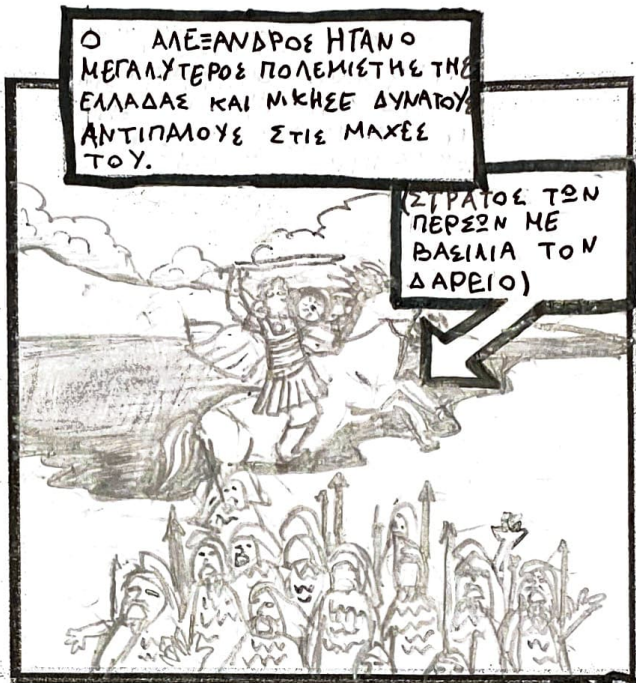 Ο ΑΛΕΞΑΝΔΡΟΣ ΗΤΑΝ Ο
ΜΕΓΑΛΥΤΕΡΟΣ ΠΟΛΕΜΙΣΤΗΣ ΤΗΣ
ΕΛΛΑΔΑΣ ΚΑΙ ΝΙΚΗΣΕ ΔΥΝΑΤΟΥΣ
ΑΝΤΙΠΑΛΟΥΣ ΣΤΙΣ ΜΑΧΕΣ
ΤΟΥ.
(ΣΤΡΑΤΟΣ ΤΩΝ
ΠΕΡΣΩΝ ΜΕ
ΒΑΣΙΛΙΑ ΤΟΝ
ΔΑΡΕΙΟ)